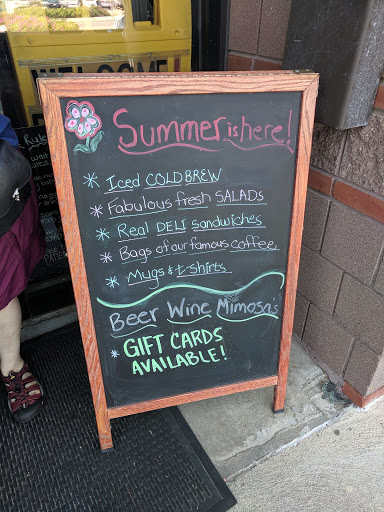 WELCOME
Summer is here!
* Iced COLD BREW
* Fabulous fresh SALADs
* Real DELI sandwiches
* Bags of our famous coffee
* Mugs & t-shirts
Beer Wine Mimosa's
* GIFT CARDS
AVAILABLE!